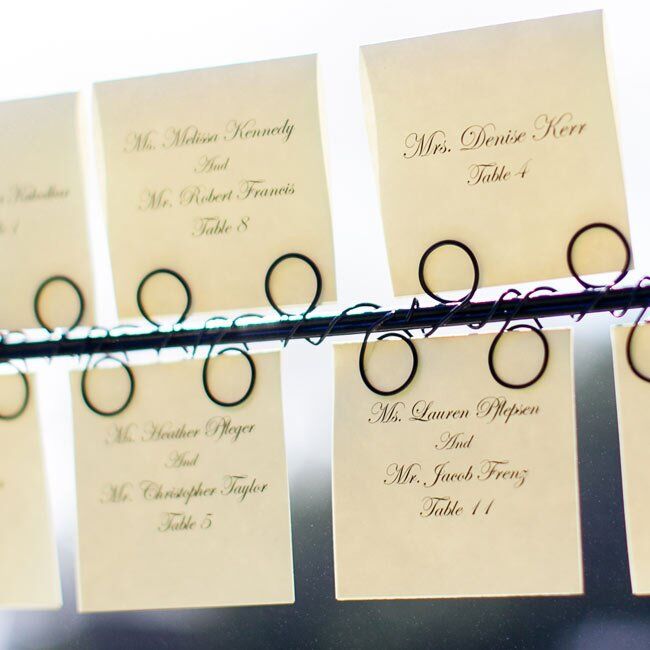 Ms. Melissa Kennedy
And
Mr. Robert Francis
Table 8
Mrs. Denise Kerr
Table 4
Ms. Heather Pfleger
And
Mr. Christopher Taylor
Table 5
Ms. Lauren Pflepsen
And
Mr. Jacob Frenz
Table 11